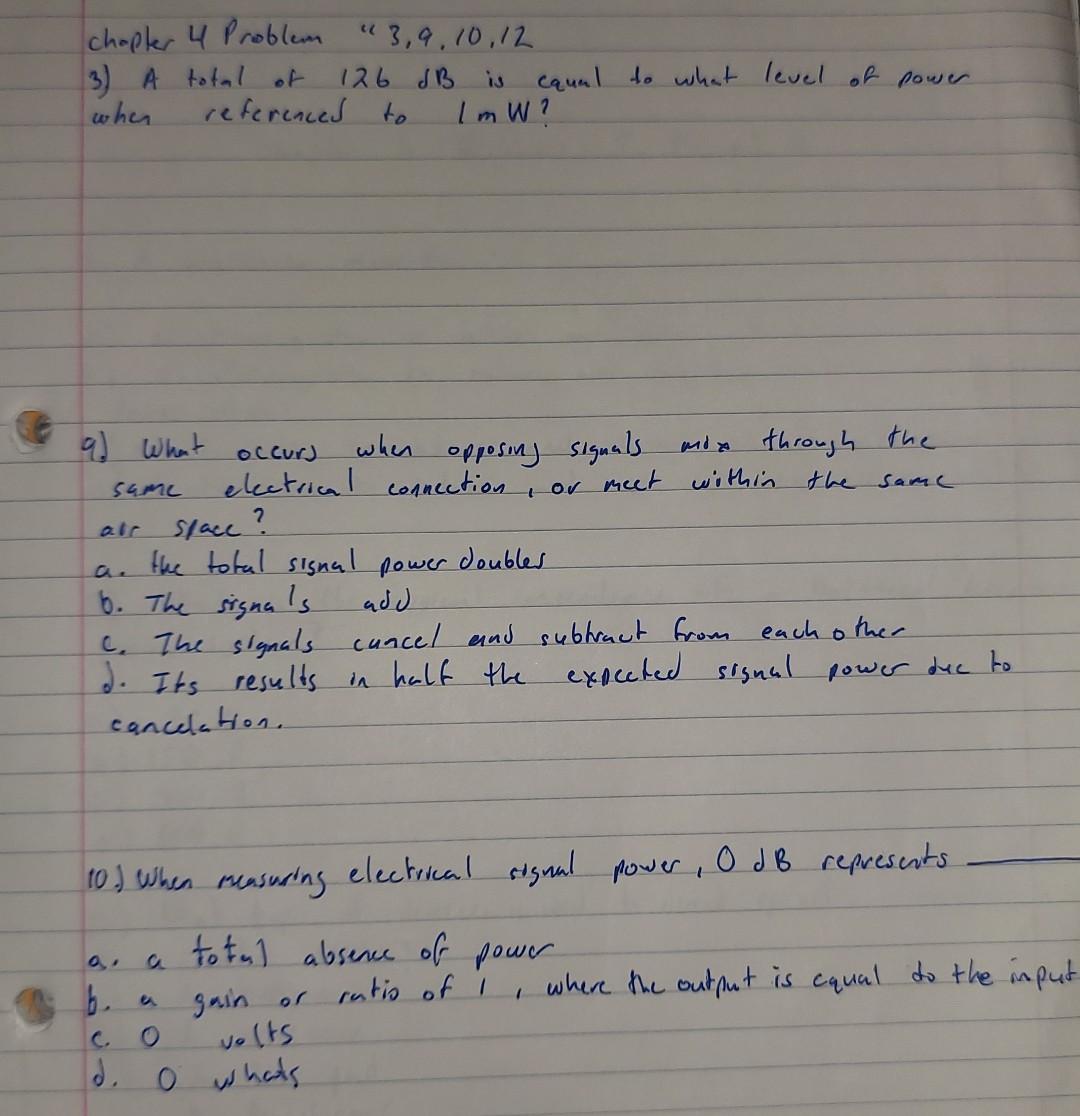 chapter 4 Problem "3,9,10,12
3) A total of 126 dB is equal to what level of power
when referenced to 1 mW?
9) What occurs when opposing signals mix through the
same electrical connection, or meet within the same
air space?
a. the total signal power doubles
b. The signals add
c. The signals cancel and subtract from each other
d. Its results in half the expected signal power due to
cancelation.
10) When measuring electrical signal power, 0 dB represents ____
a. a total absence of power
b. a gain or ratio of 1, where the output is equal to the input
c. 0 volts
d. 0 whats